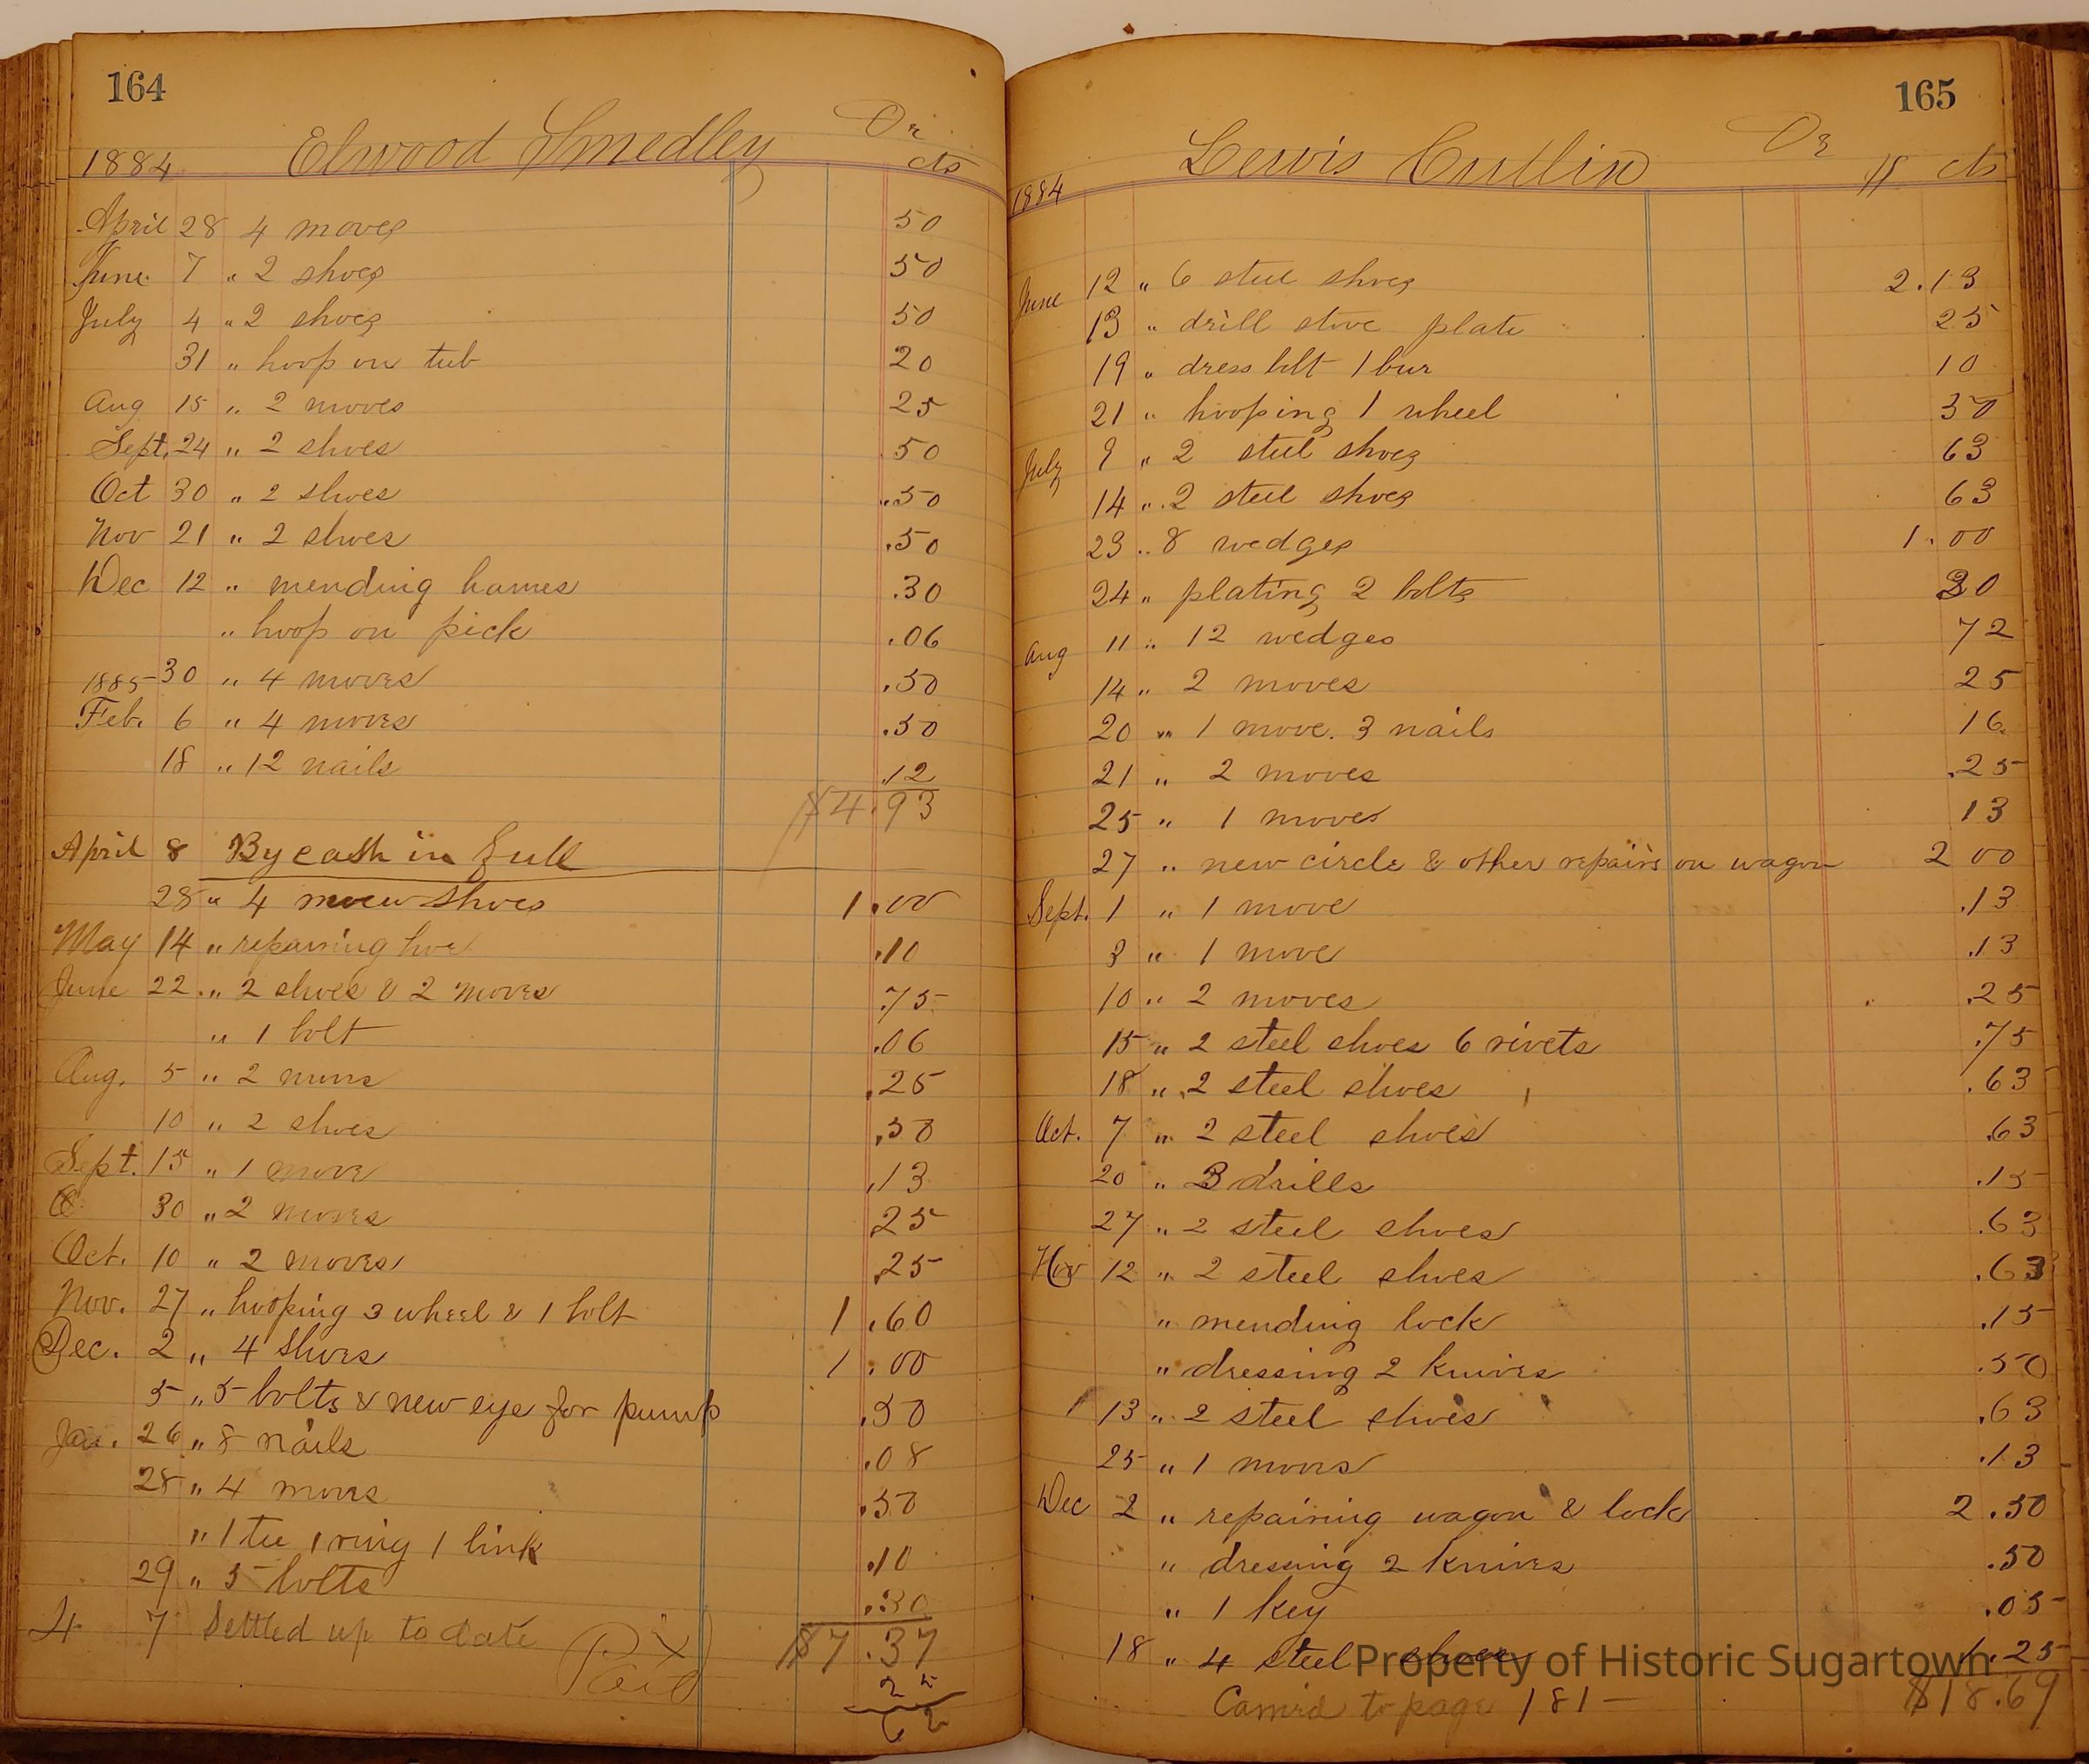 164
Elwood Smedley Dr
1884 cts
April 28 4 moves 50
June 7 " 2 shoes 50
July 4 " 2 shoes 50
31 " hoop on tub 20
Aug 15 " 2 moves 25
Sept. 24 " 2 shoes 50
Oct 30 " 2 shoes .50
Nov 21 " 2 shoes .50
Dec 12 " mending hames .30
" hoop on pick .06
1885 30 " 4 moves .50
Feb. 6 " 4 moves .50
18 " 12 nails .12
$4.93
April 8 By cash in full
28 " 4 shoes 1.00
May 14 " repairing hoe .10
June 22 " 2 shoes & 2 moves .75
" 1 bolt .06
Aug. 5 " 2 moves .25
10 " 2 shoes .50
Sept. 15 " 1 move .13
30 " 2 moves 25
Oct. 10 " 2 moves .25
Nov. 27 " hooping 3 wheel & 1 bolt 1.60
Dec. 2 " 4 shoes 1.00
5 " 5 bolts & new eye for pump .50
Jan. 26 " 8 nails .08
28 " 4 moves .50
" 1 tee 1 ring 1 link .10
29 " 5 bolts .30
4 7 Settled up to date Paid $7.37
25
62
165
Lewis Cutlin Dr
1884 $ cts
June 12 " 6 steel shoes 2.13
13 " drill stove plate 25
19 " dress bilt 1 bur 10
21 " hooping 1 wheel 50
July 9 " 2 steel shoes 63
14 " 2 steel shoes 63
23 " 8 wedges 1.00
24 " plating 2 bolts 30
Aug 11 " 12 wedges 72
14 " 2 moves 25
20 " 1 move. 3 nails 16
21 " 2 moves .25
25 " 1 moves 13
27 " new circle & other repairs on wagon 2 00
Sept. 1 " 1 move .13
3 " 1 move .13
10 " 2 moves .25
15 " 2 steel shoes 6 rivets .75
18 " 2 steel shoes .63
Oct. 7 " 2 steel shoes .63
20 " 3 drills .15
27 " 2 steel shoes .63
Nov 12 " 2 steel shoes .63
" mending lock .15
" dressing 2 knives .50
13 " 2 steel shoes .63
25 " 1 moves .13
Dec 2 " repairing wagon & lock 2.50
" dressing 2 knives .50
" 1 key .05
18 " 4 steel shoes 1.25
Property of Historic Sugartown
Carried to page 181 — $18.69